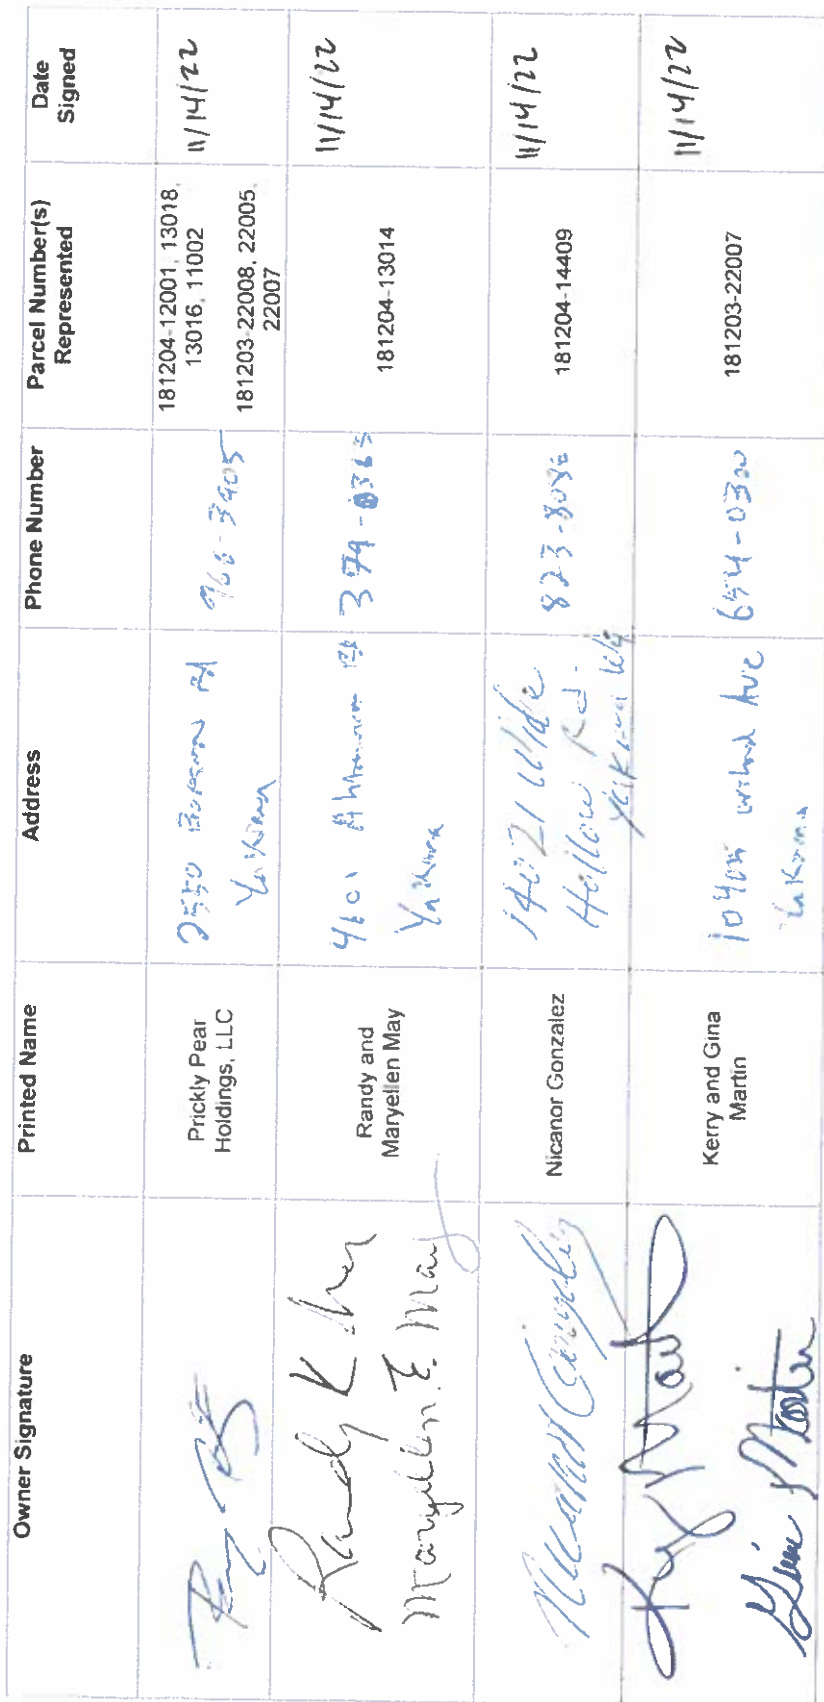 Owner Signature
Printed Name
Address
Phone Number
Parcel Number(s)
Represented
Date
Signed
Prickly Pear
Holdings, LLC
2550
Rd
Yakima
966-3905
181204-12001, 13018,
13016, 11002
181203-22008, 22005,
22007
11/14/22
Randy K May
Maryellen E. May
Randy and
Maryellen May
4601 Ahtanum Rd
Yakima
379-0365
181204-13014
11/14/22
Nicanor Gonzalez
14021 Wide
Hollow Rd.
Yakima WA
823-8086
181204-14409
11/14/22
Gina Martin
Kerry and Gina
Martin
Ave
Yakima
654-0300
181203-22007
11/14/22